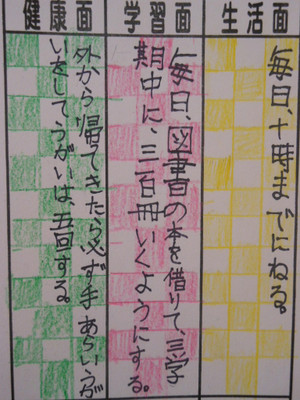 生活面
毎日、十時までにねる。
学習面
毎日、図書の本を借りて、三学
期中に、三百冊いくようにする。
健康面
外から帰てきたら必ず手あらいうが
いをしてうがいは、五回する。